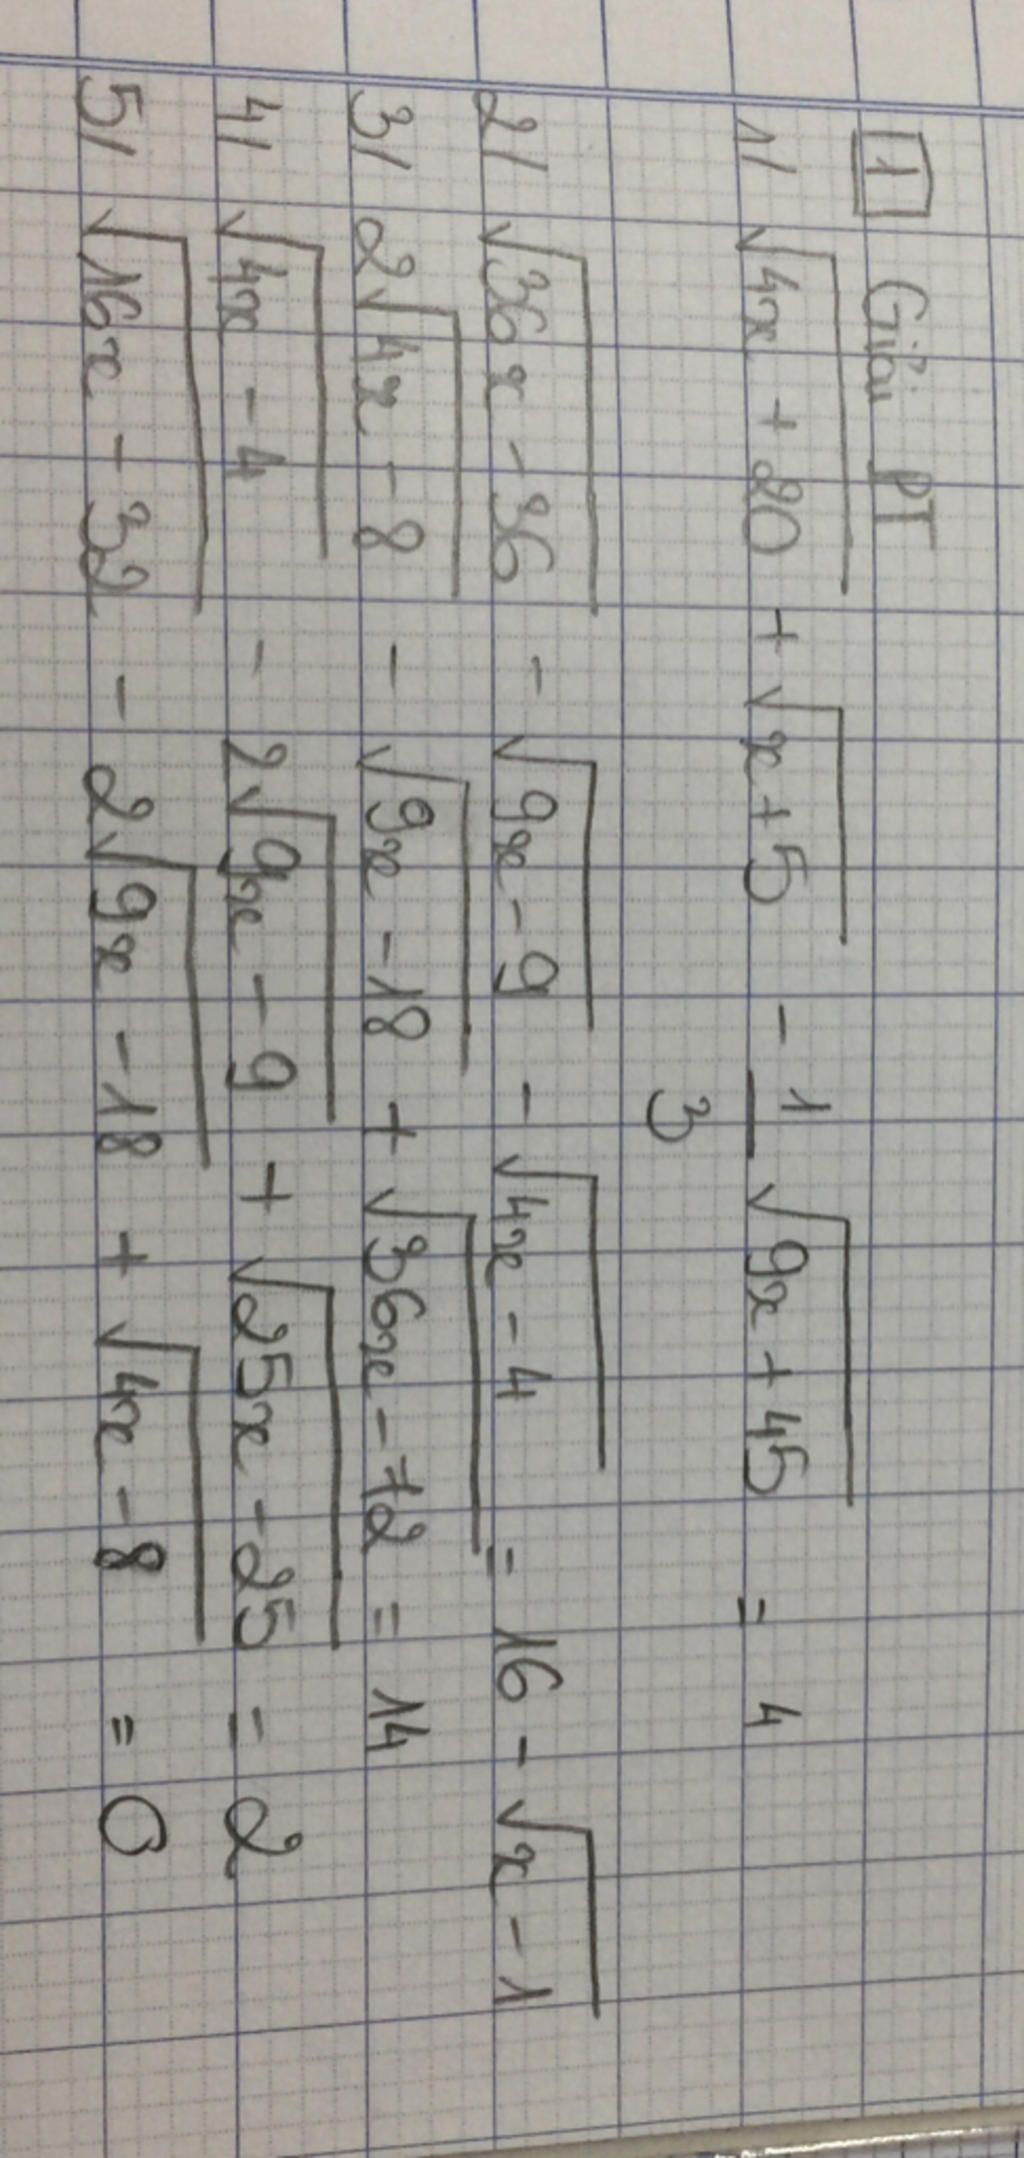 1 Giải PT
1/ √(4x + 20) + √(x + 5) - 1/3 √(9x + 45) = 4
2/ √(36x - 36) - √(9x - 9) - √(4x - 4) = 16 - √(x - 1)
3/ 2√(4x - 8) - √(9x - 18) + √(36x - 72) = 14
4/ √(4x - 4) - 2√(9x - 9) + √(25x - 25) = 2
5/ √(16x - 32) - 2√(9x - 18) + √(4x - 8) = 0